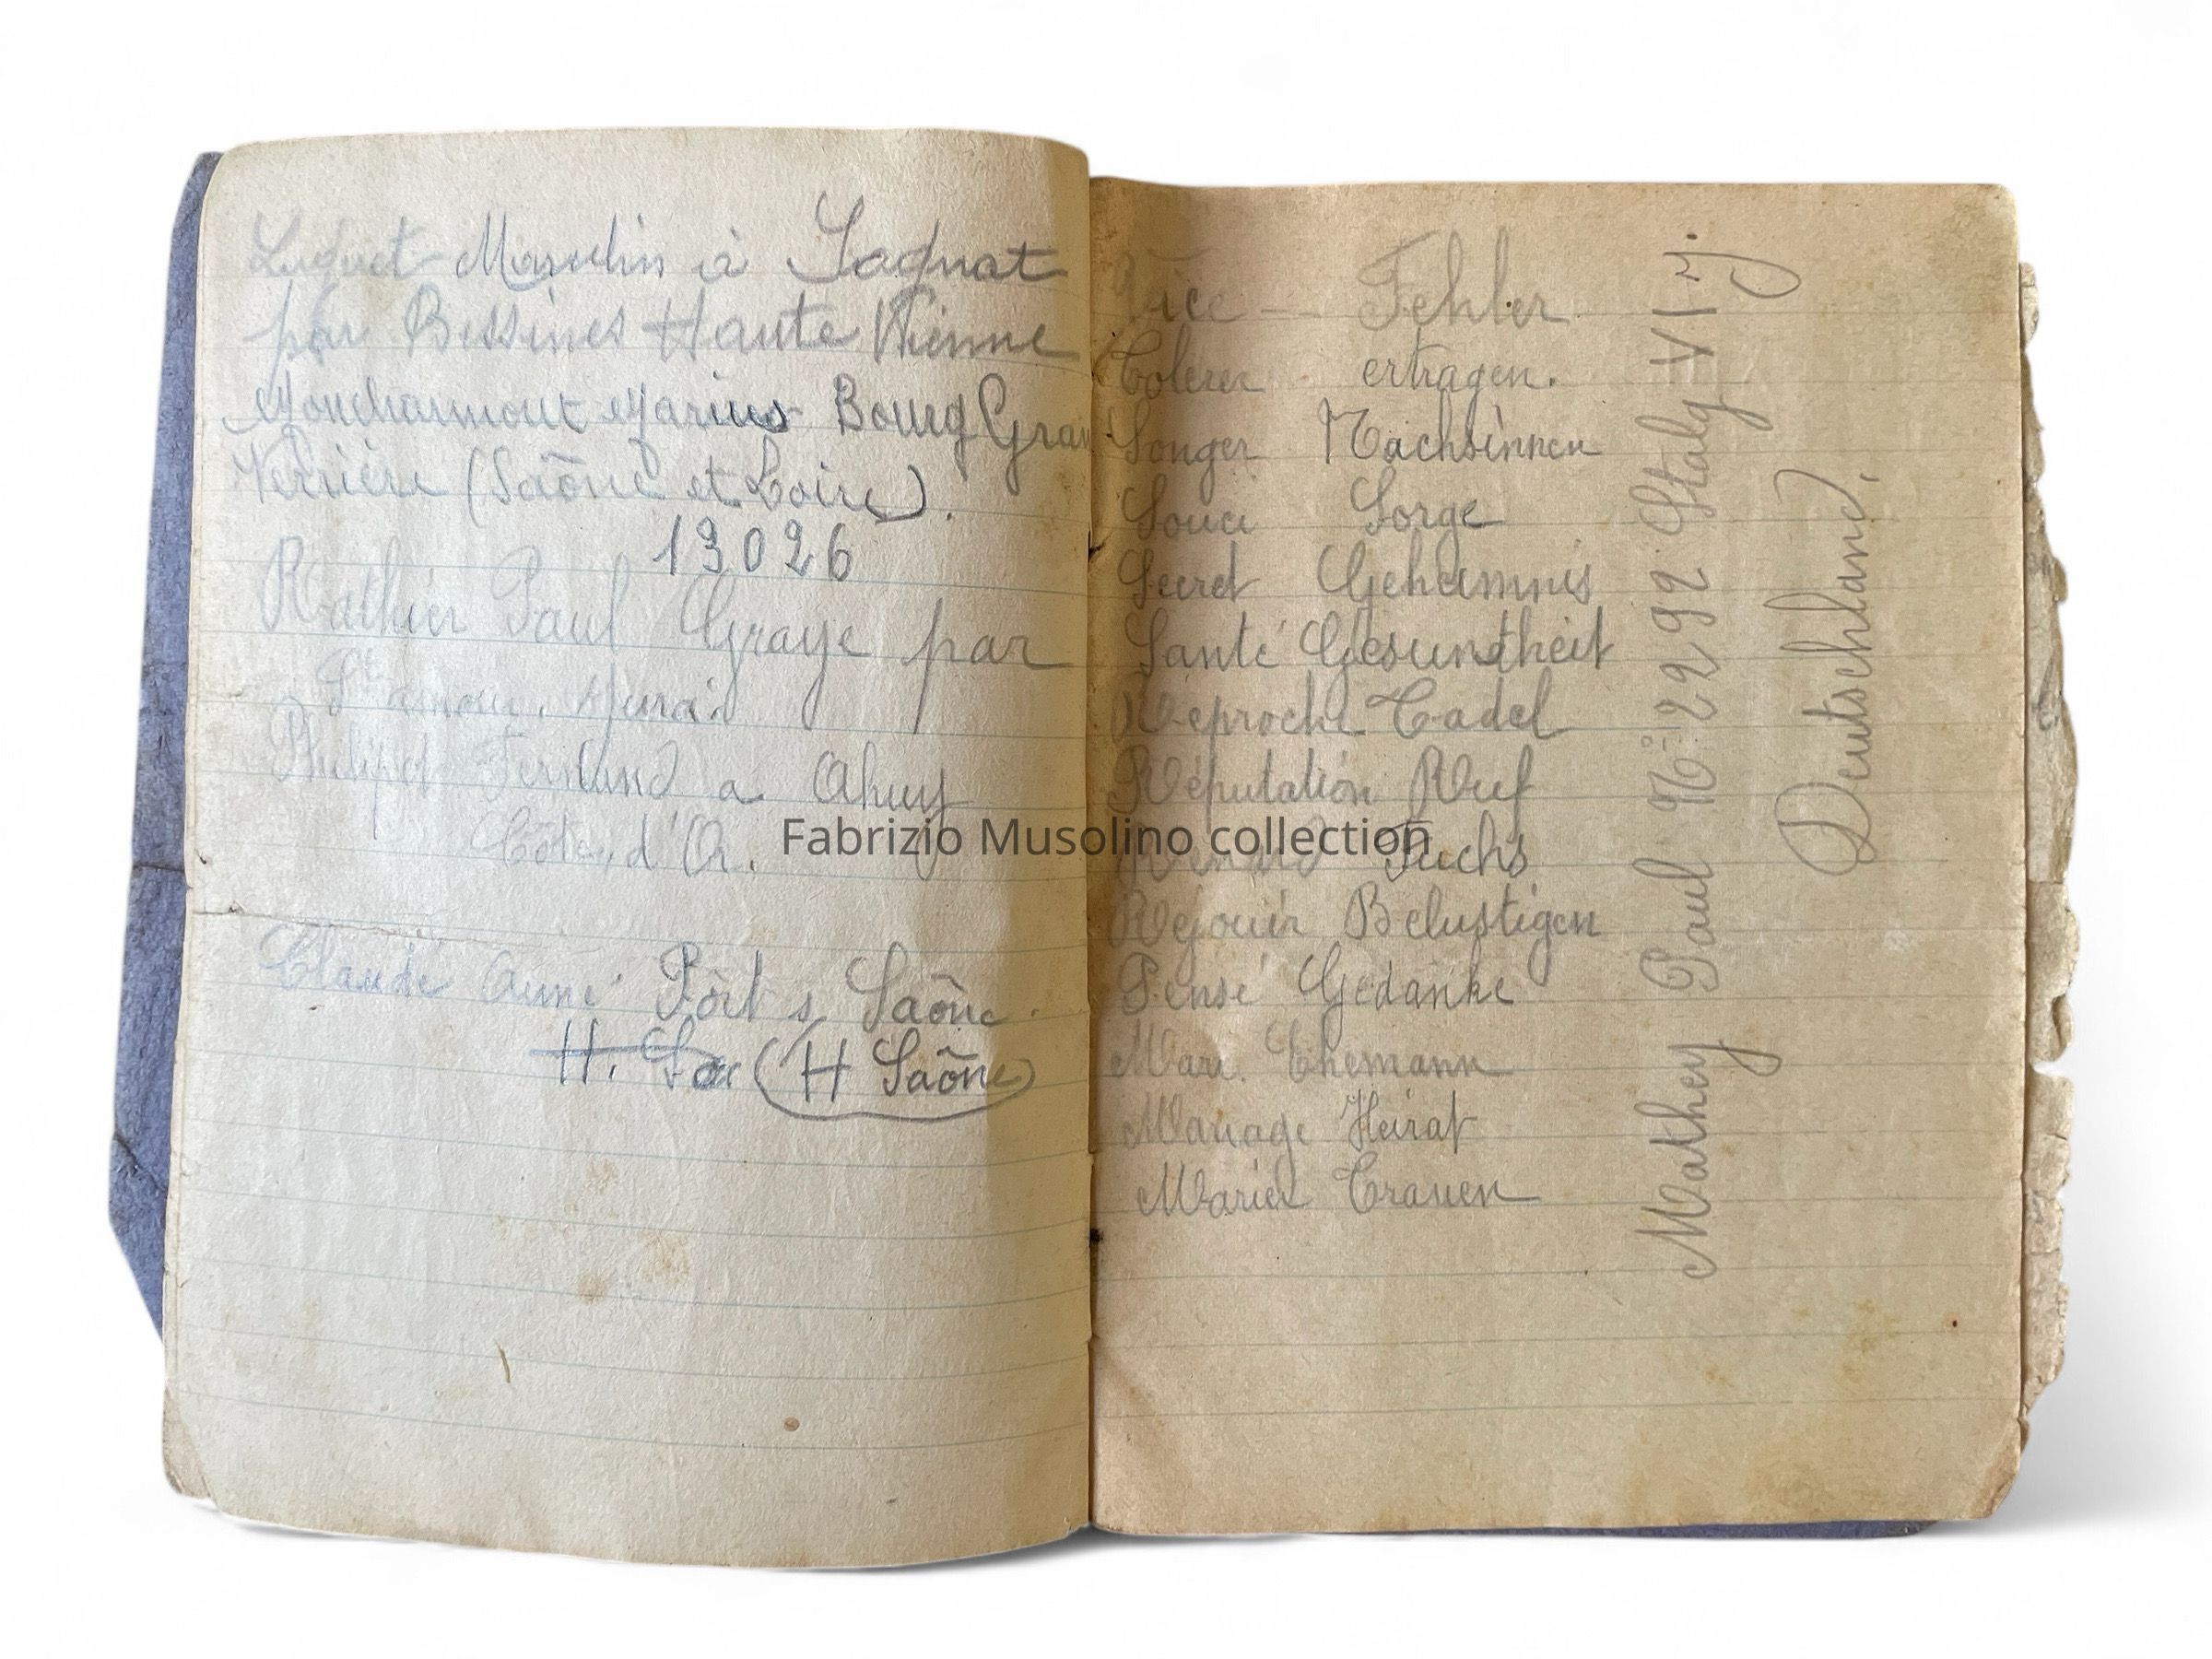 Luquet Marcelin à Sagnat
par Bessines Haute Vienne
Moncharmont Marius Bourg Gran
Verrière (Saône et Loire).
13026
Rathier Paul Graye par
St amour. Jura.
Philipot Fernand a Ahuy
Côte, d'Or.
Claude Aimé Pôrt s Saône.
H. (H Saône)
Vice -- Fehler
Tolerer ertragen.
Songer Nachsinnen
Souci Sorge
Secret Geheimnis
Santé Gesundtheit
Reproche Tadel
Réputation Ruf
Renard Fuchs
Rejouir Belustigen
Pensé Gedanke
Mari. Ehemann
Mariage Heirat
Marier Trauen
Mathey Paul No: 22992 Stalg VI J
Deutschland.
Fabrizio Musolino collection